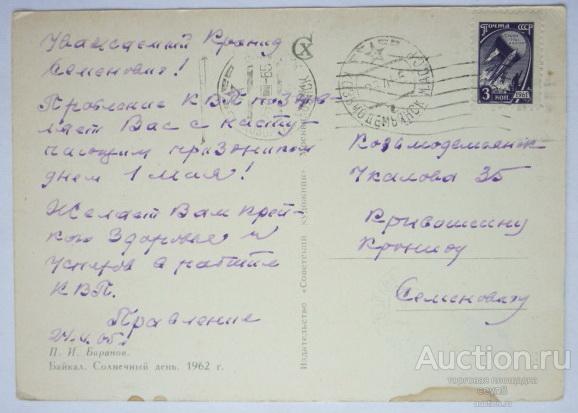 Уважаемый Кронид
Семенович!
Правление КВП поздрав-
ляет Вас с насту-
пающим праздником
днем 1 мая!
Желает Вам креп-
кого здоровья и
успехов в работе
КВП.
Правление
П. И. Баранов.
Байкал. Солнечный день. 1962 г.
Издательство «Советский художник»
ПОЧТА СССР
3 КОП. 1961
Козьмодемьянск
Чкалова 35
Кривошеину
Крониду
Семеновичу
Auction.ru
торговая площадка